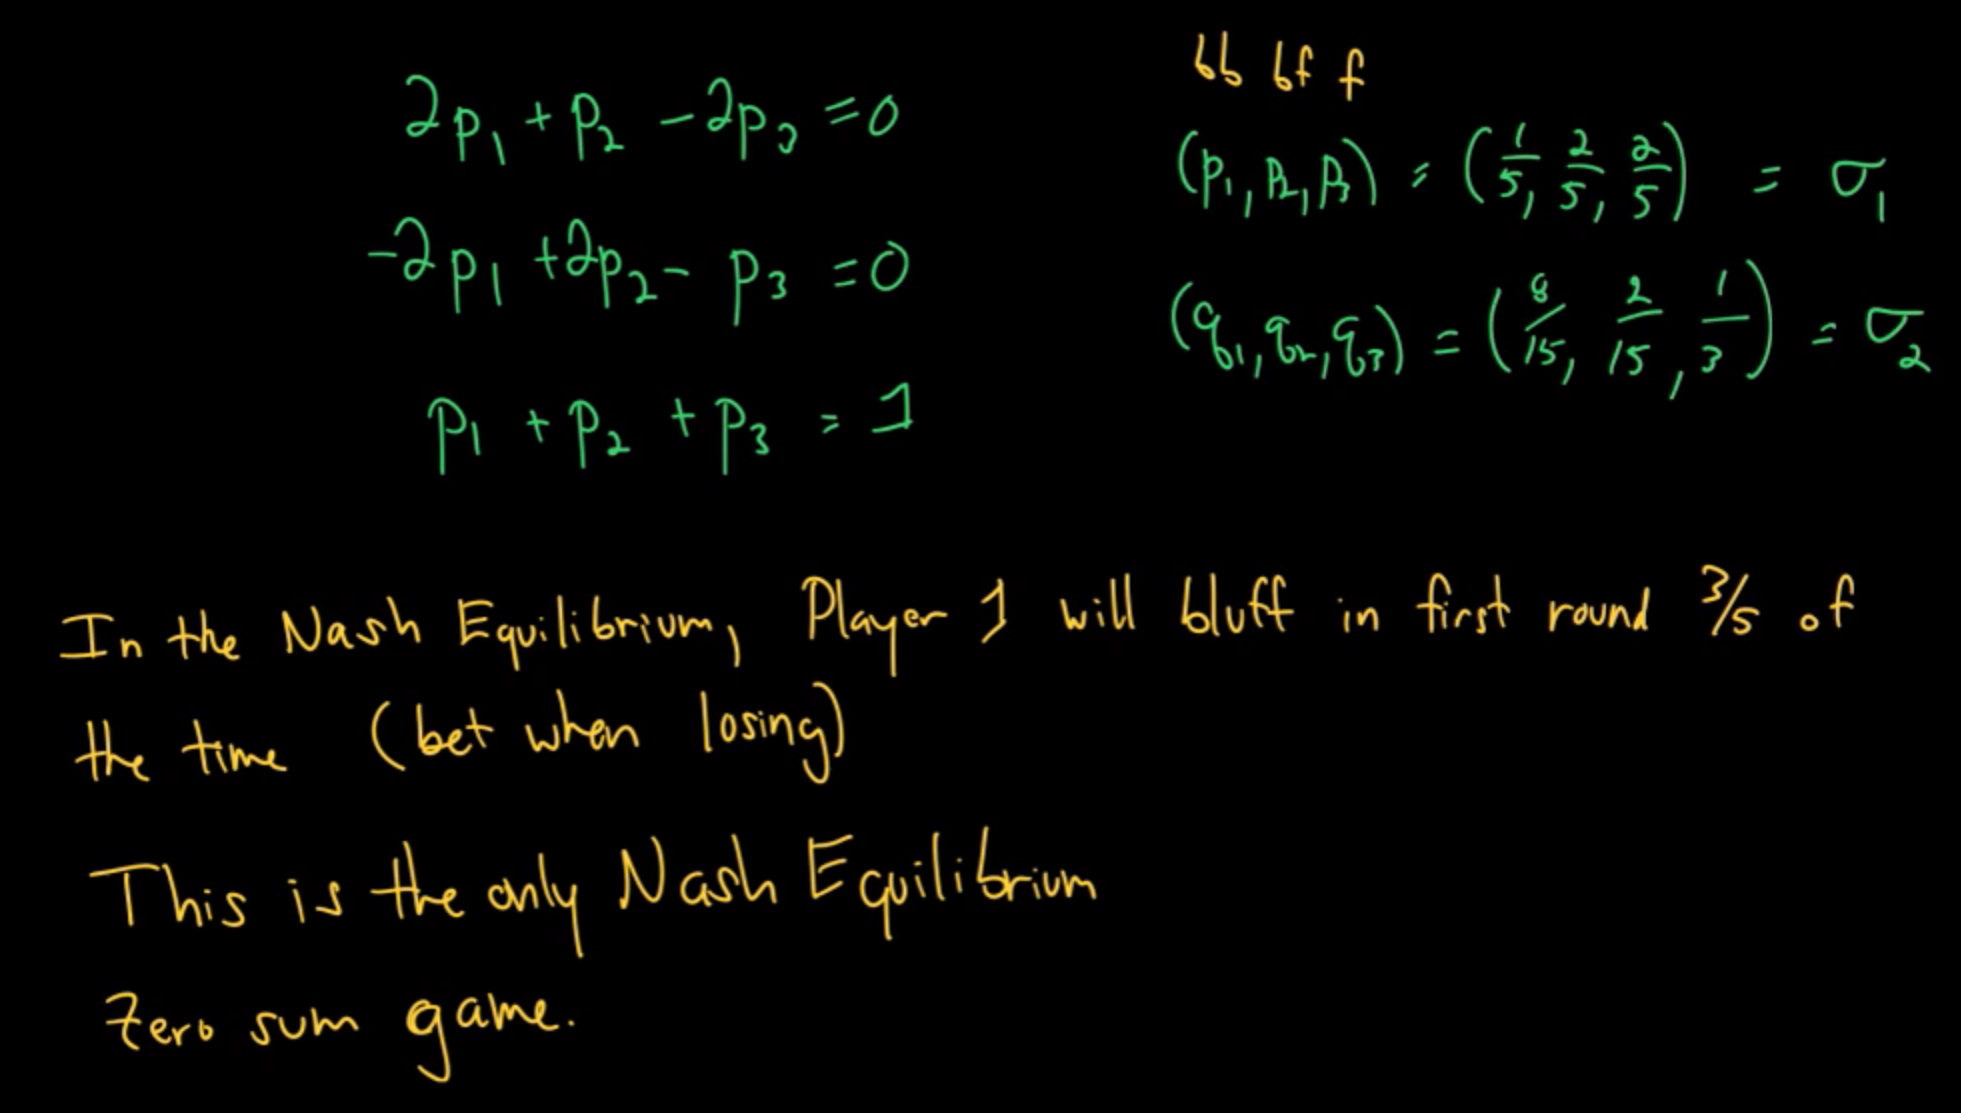 2p₁ + p₂ - 2p₃ = 0
-2p₁ + 2p₂ - p₃ = 0
p₁ + p₂ + p₃ = 1
bb bf f
(p₁, p₂, p₃) = (1/5, 2/5, 2/5) = σ₁
(q₁, q₂, q₃) = (8/15, 2/15, 1/3) = σ₂
In the Nash Equilibrium, Player 1 will bluff in first round 3/5 of
the time (bet when losing)
This is the only Nash Equilibrium
Zero sum game.